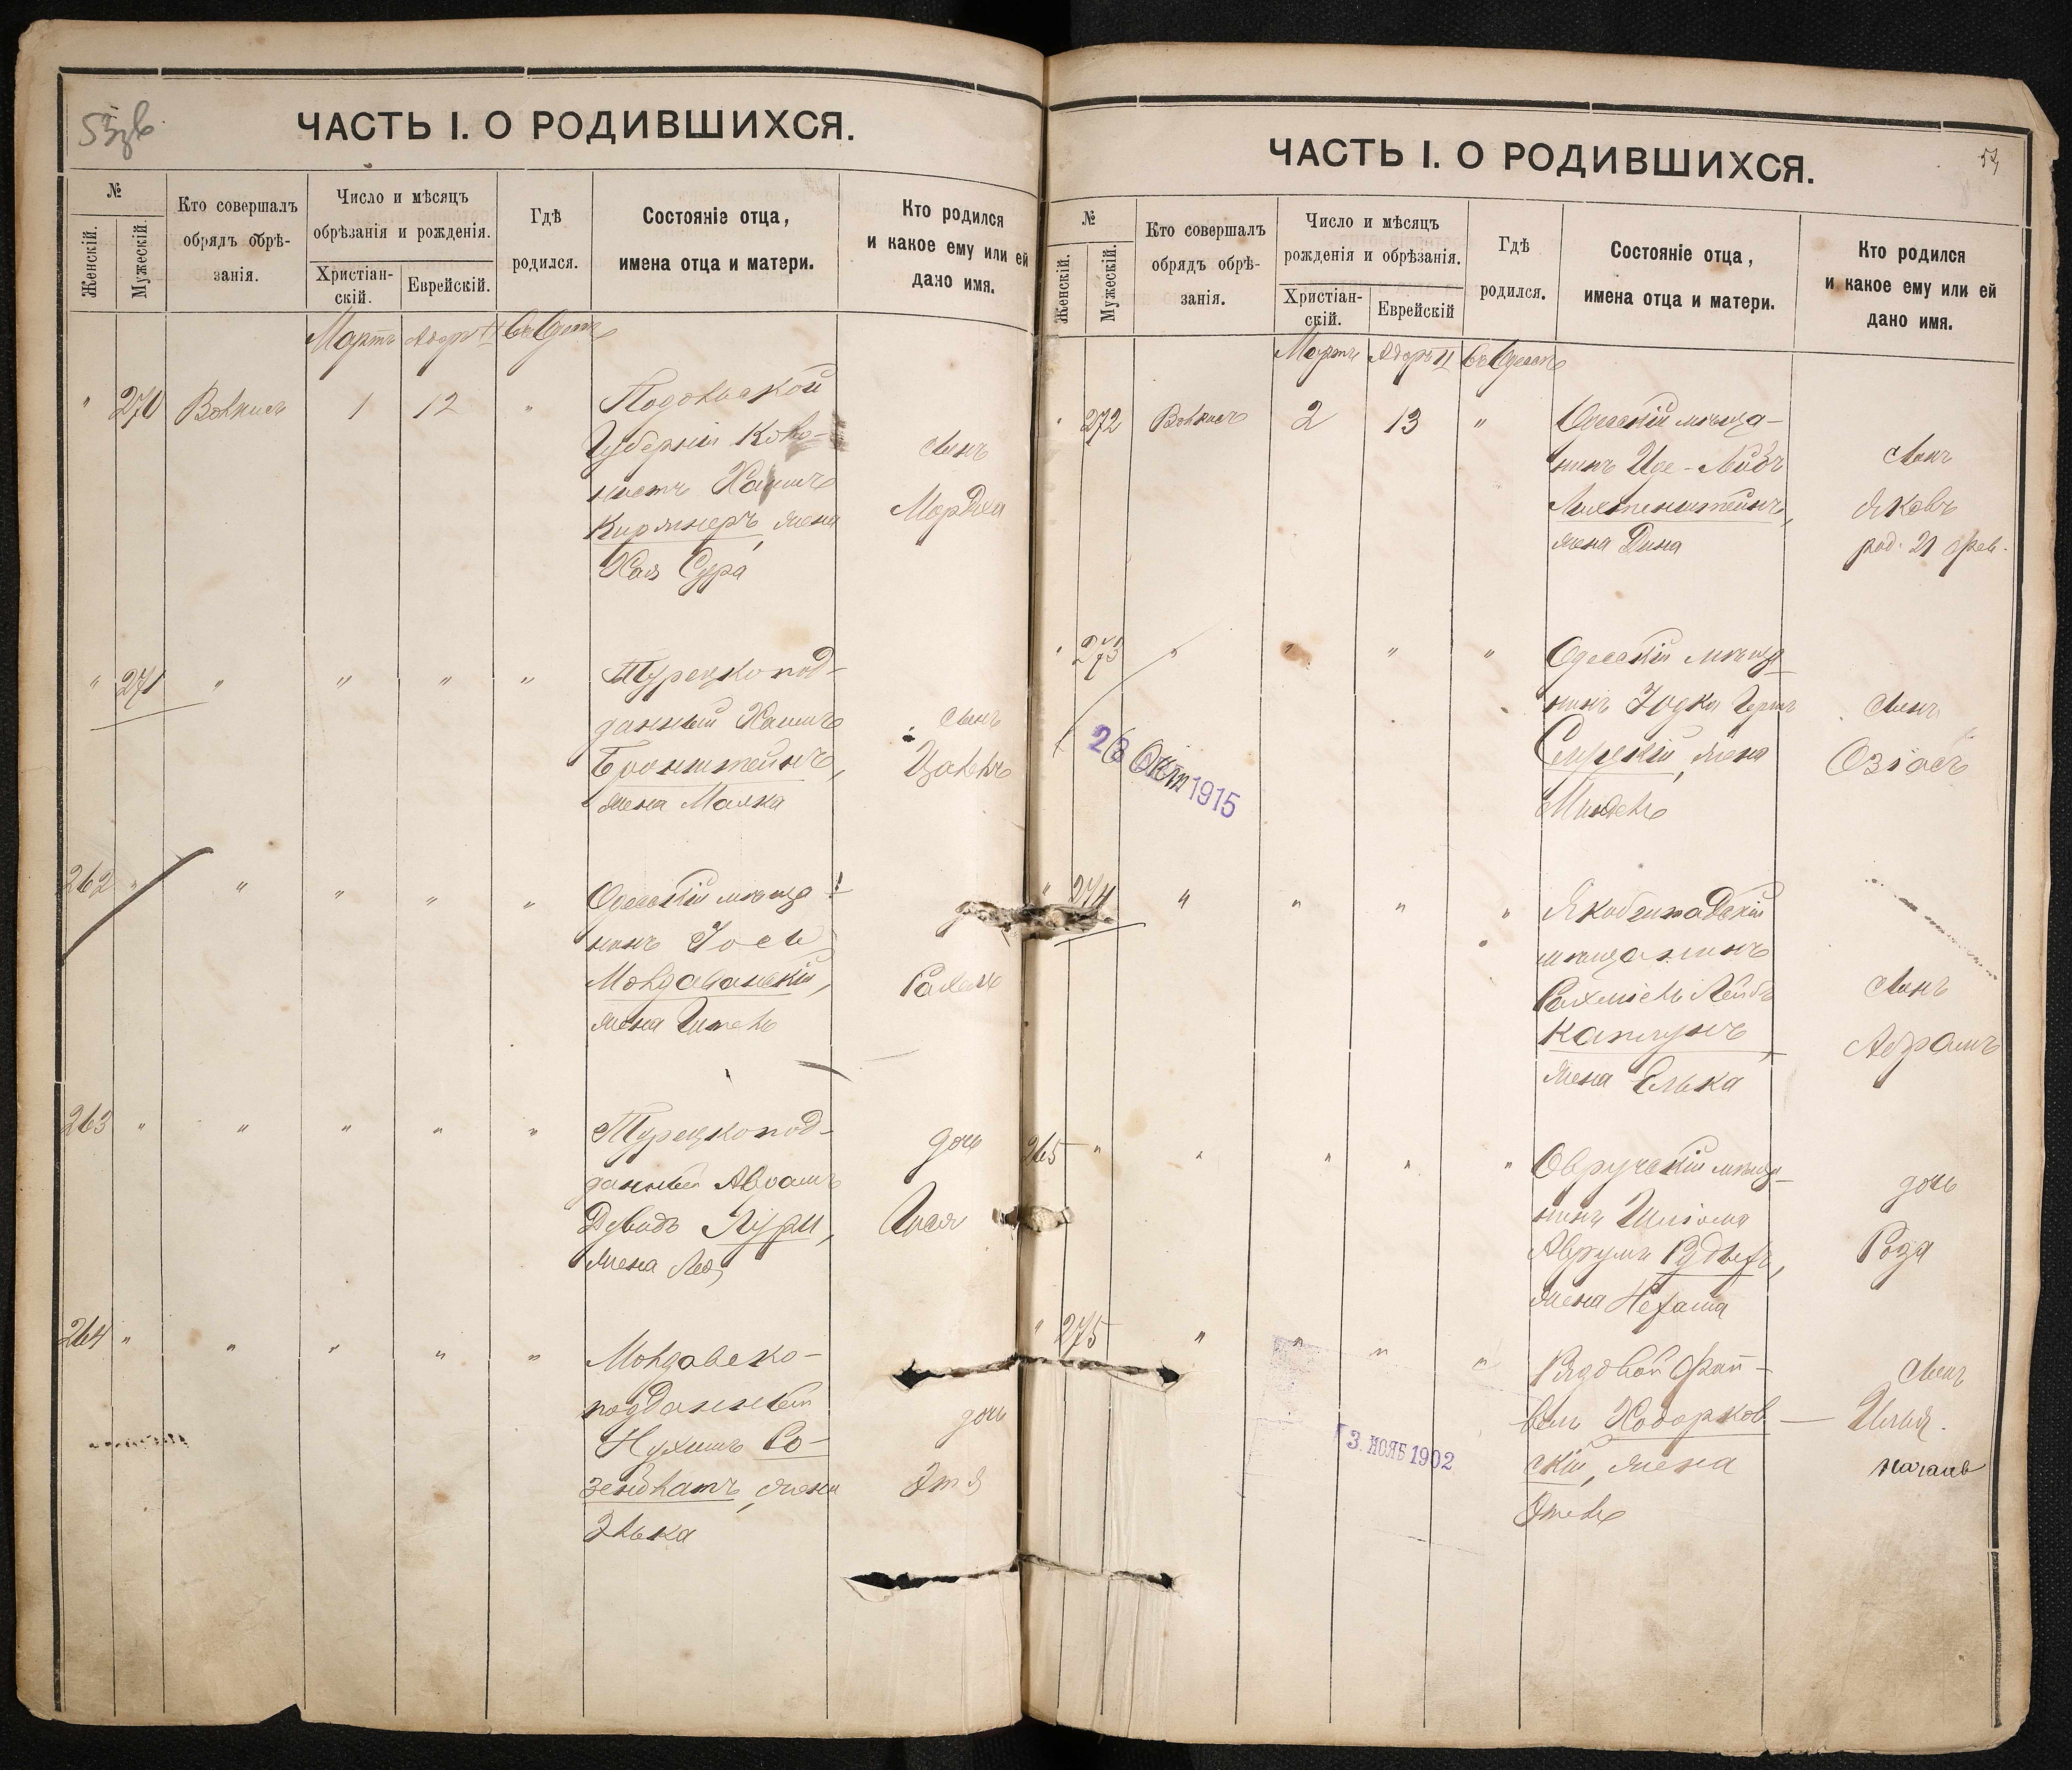 ЧАСТЬ I. О РОДИВШИХСЯ.
№
Женскій.
Мужескій.
Кто совершалъ
обрядъ обрѣ-
занія.
Число и мѣсяцъ
обрѣзанія и рожденія.
Христіан-
скій.
Еврейскій.
Гдѣ
родился.
Состояніе отца,
имена отца и матери.
Кто родился
и какое ему или ей
дано имя.
Мартъ Адаръ II
" 270 1 12 "
Подольской
Губерніи Коло-
нистъ Хаимъ
Киржнеръ, жена
Хая Сура
сынъ
" 271 " " " "
Турецкопод-
данный Хаимъ
Бронштейнъ,
жена Малка
сынъ
262 " " " " "
Одесскій мѣща-
нинъ Іось
Молдаванскій,
жена
Рахель
263 " " " " "
Турецкопод-
данный Авраамъ
Давидъ Лури,
жена Лея
дочь
264 " " " " "
Молдавско-
подданный
Нухимъ Ро-
зенблатъ, жена
Элька
дочь
Этя
ЧАСТЬ I. О РОДИВШИХСЯ.
№
Женскій.
Мужескій.
Кто совершалъ
обрядъ обрѣ-
занія.
Число и мѣсяцъ
рожденія и обрѣзанія.
Христіан-
скій.
Еврейскій
Гдѣ
родился.
Состояніе отца,
имена отца и матери.
Кто родился
и какое ему или ей
дано имя.
Мартъ Адаръ II
" 272 2 13 "
Одесскій мѣща-
нинъ Лейбъ
Лихтенштейнъ,
жена Дина
сынъ
Яковъ
род. 21 фев.
" 273 " " " "
Одесскій мѣща-
нинъ
жена
Миндель
сынъ
Озіасъ
1915
" 274 " " " "
мѣщанинъ
Рахміель Лейбъ
Капчунъ,
жена Елька
сынъ
Абрамъ
265 " " " " "
Овручскій мѣща-
нинъ Шліома
Аврумъ
жена Нехама
дочь
Роза
" 275 " " " "
Рядовой Фай-
вель Ходорков-
скій, жена
Этель
сынъ
Илья.
3. НОЯБ 1902